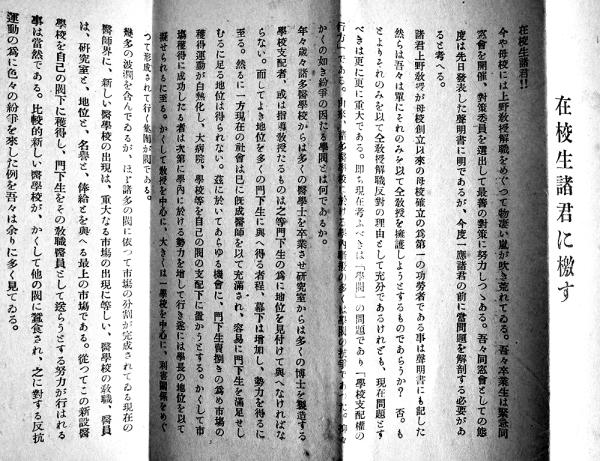 在校生諸君に檄す
在校生諸君!!
今や母校には上野敎授解職をめぐつて物凄い嵐が吹き荒れてゐる。吾々卒業生は緊急同
窓會を開催、對策委員を選出して最善の對策に努力しつゝある。吾々同窓會としての態
度は先日發表した聲明書に明であるが、今度一應諸君の前に當問題を解剖する必要があ
ると考へる。
諸君上野敎授が母校創立以來の母校確立の爲第一の功勞者である事は聲明書にも記した
然らば吾々は單にそれのみを以て全敎授を擁護しようとするものであらうか? 否。も
とよりそれのみを以て全敎授解職反對の理由として充分であるけれども、現在問題とす
べきは更に更に重大である。即ち現在考ふべきは「學閥」の問題であり「學校支配權の
行方」である。
かくの如き紛爭の因たる學閥とは何であるか。
年々歳々諸多醫學校からは多くの醫學士を卒業させ硏究室からは多くの博士を製造する
學校支配者、或は指導敎授たるものは之等門下生の爲に地位を見付けて與へなければな
らない。而してよき地位を多くの門下生に與へ得る者程、幕下は增加し、勢力を得るに
至る。然るに一方現在の社會は已に既成醫師を以て充滿され、容易に門下生を滿足せし
むるに足る地位は得られない。茲に於いてあらゆる機會に、門下生賣捌きの爲め市場の
獲得運動が白熱化し、大病院、學校等を自己の閥の支配下に置かうとする。かくして市
場獲得に成功したる者は次第に學內に於ける勢力を增して行き遂には學長の地位を以て
擬せられるに至る。かくして敎授を中心に、大きくは一學校を中心に、利害關係をめぐ
つて形成されて行く集團が閥である。
幾多の波瀾を含んでゐるが、ほゞ諸多の閥に依つて市場の分割が完成されてゐる現在の
醫師界に、新しい醫學校の出現は、重大なる市場の出現に等しい、醫學校の敎職、醫員
は、硏究室と、地位と、名譽と、俸給とを與へる最上の市場である。從つてこの新設醫
學校を自己の閥下に獲得し、門下生をその敎職醫員として送らうとする努力が行はれる
事は當然である。比較的新しい醫學校が、かくして他の閥に蠶食され、之に對する反抗
運動の爲に色々の紛爭を來した例を吾々は余りに多く見てゐる。